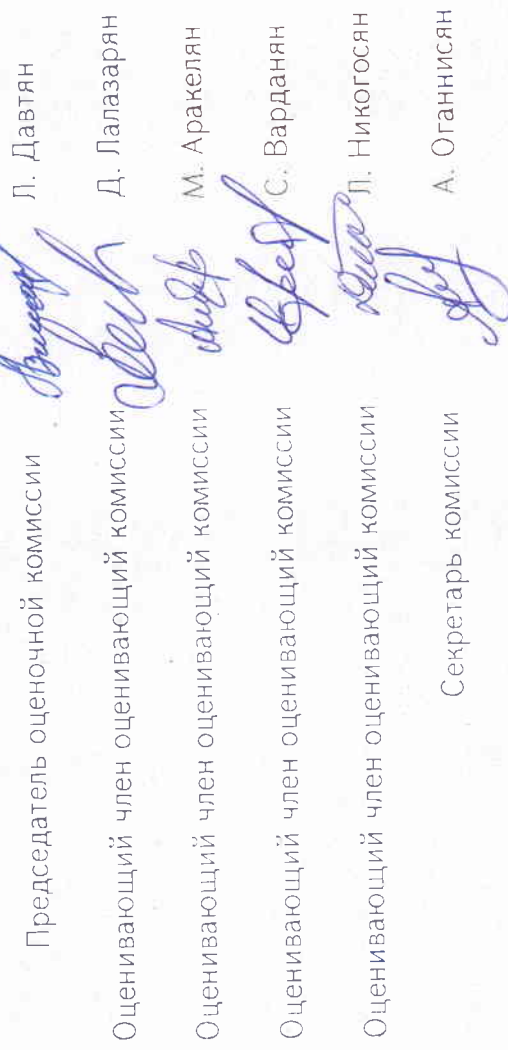 Председатель оценочной комиссии Л. Давтян
Оценивающий член оценивающий комиссии Д. Лалазарян
Оценивающий член оценивающий комиссии М. Аракелян
Оценивающий член оценивающий комиссии С. Варданян
Оценивающий член оценивающий комиссии Л. Никогосян
Секретарь комиссии А. Оганнисян